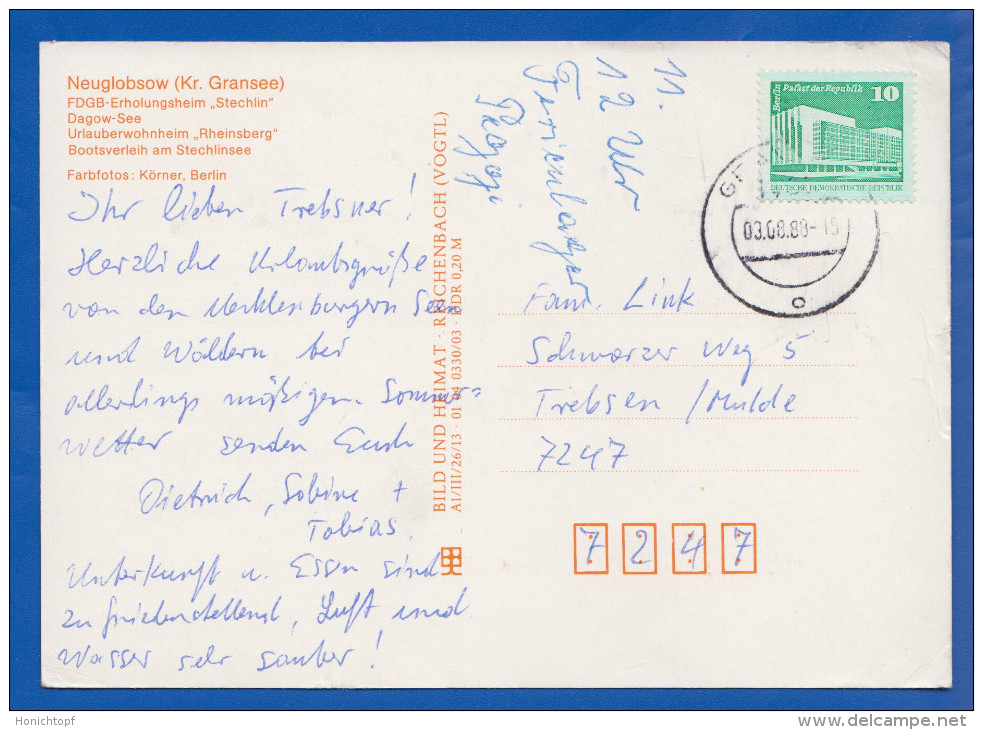 Neuglobsow (Kr. Gransee)
FDGB-Erholungsheim „Stechlin"
Dagow-See
Urlauberwohnheim „Rheinsberg"
Bootsverleih am Stechlinsee
Farbfotos: Körner, Berlin
Ihr lieben Trebsner!
Herzliche Urlaubsgrüße
von den Mecklenburgern Seen
und Wäldern bei
allerdings mäßigem Sommer=
wetter senden Euch
Dietrich, Sabine +
Tobias.
Unterkunft u. Essen sind
zufriedenstellend, Luft und
Wasser sehr sauber!
BILD UND HEIMAT · REICHENBACH (VOGTL)
A1/III/26/13 · 01 04 0330/03 · DDR 0,20 M
11.
12 Uhr
Ferienlager
Berlin Palast der Republik 10
DEUTSCHE DEMOKRATISCHE REPUBLIK
03.08.88-15
Fam. Link
Schwarzer Weg 5
Trebsen/Mulde
7247
7 2 4 7
Honichtopf
delcampe.net